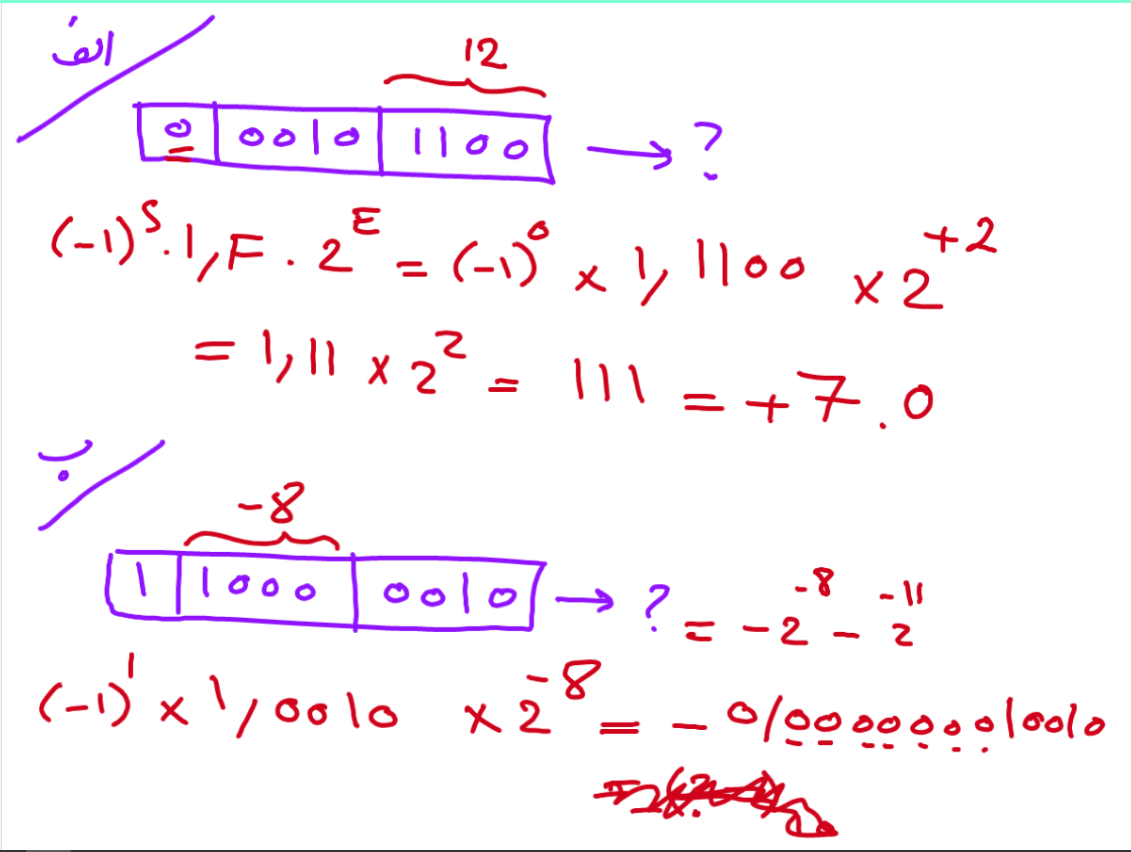 الف
12
0 0010 1100 → ?
(-1)^S . 1,F . 2^E = (-1)^0 × 1,1100 × 2^+2
= 1,11 × 2^2 = 111 = +7.0
ب
-8
1 1000 0010 → ? = -2^-8 - 2^-11
(-1)^1 × 1,0010 × 2^-8 = - 0,000000010010